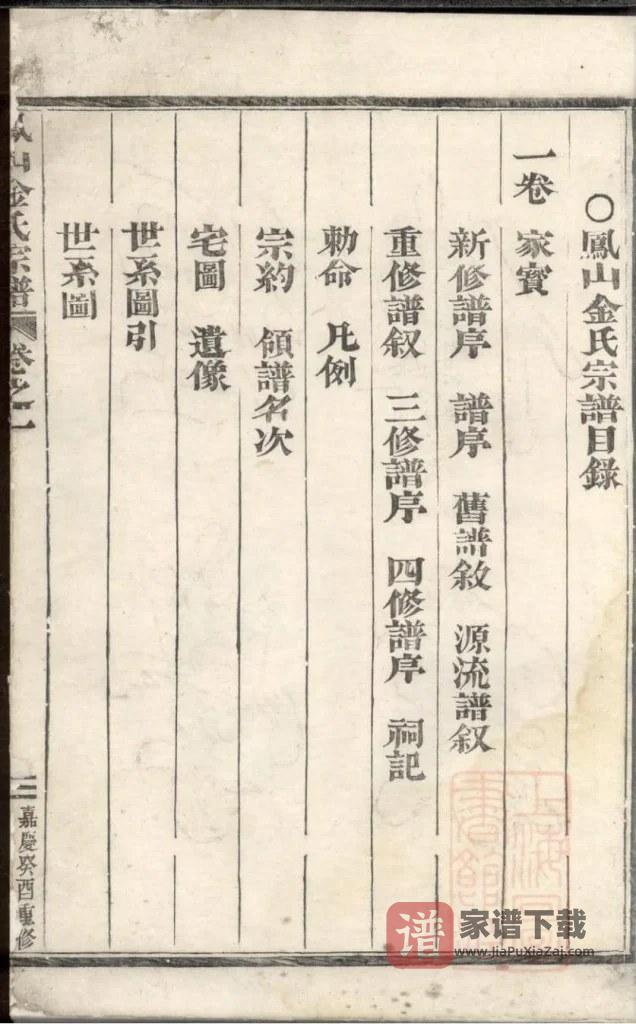 ○鳳山金氏宗譜目錄
一卷 家寶
新修譜序 譜序 舊譜敘 源流譜叙
重修譜叙 三修譜序 四修譜序 祠記
勅命 凡例
宗約 領譜名次
宅圖 遺像
世系圖引
世系圖
鳳山金氏宗譜 卷之一
三 嘉慶癸酉重修
上海
谱 家谱下载
www.JiaPuXiaZai.com